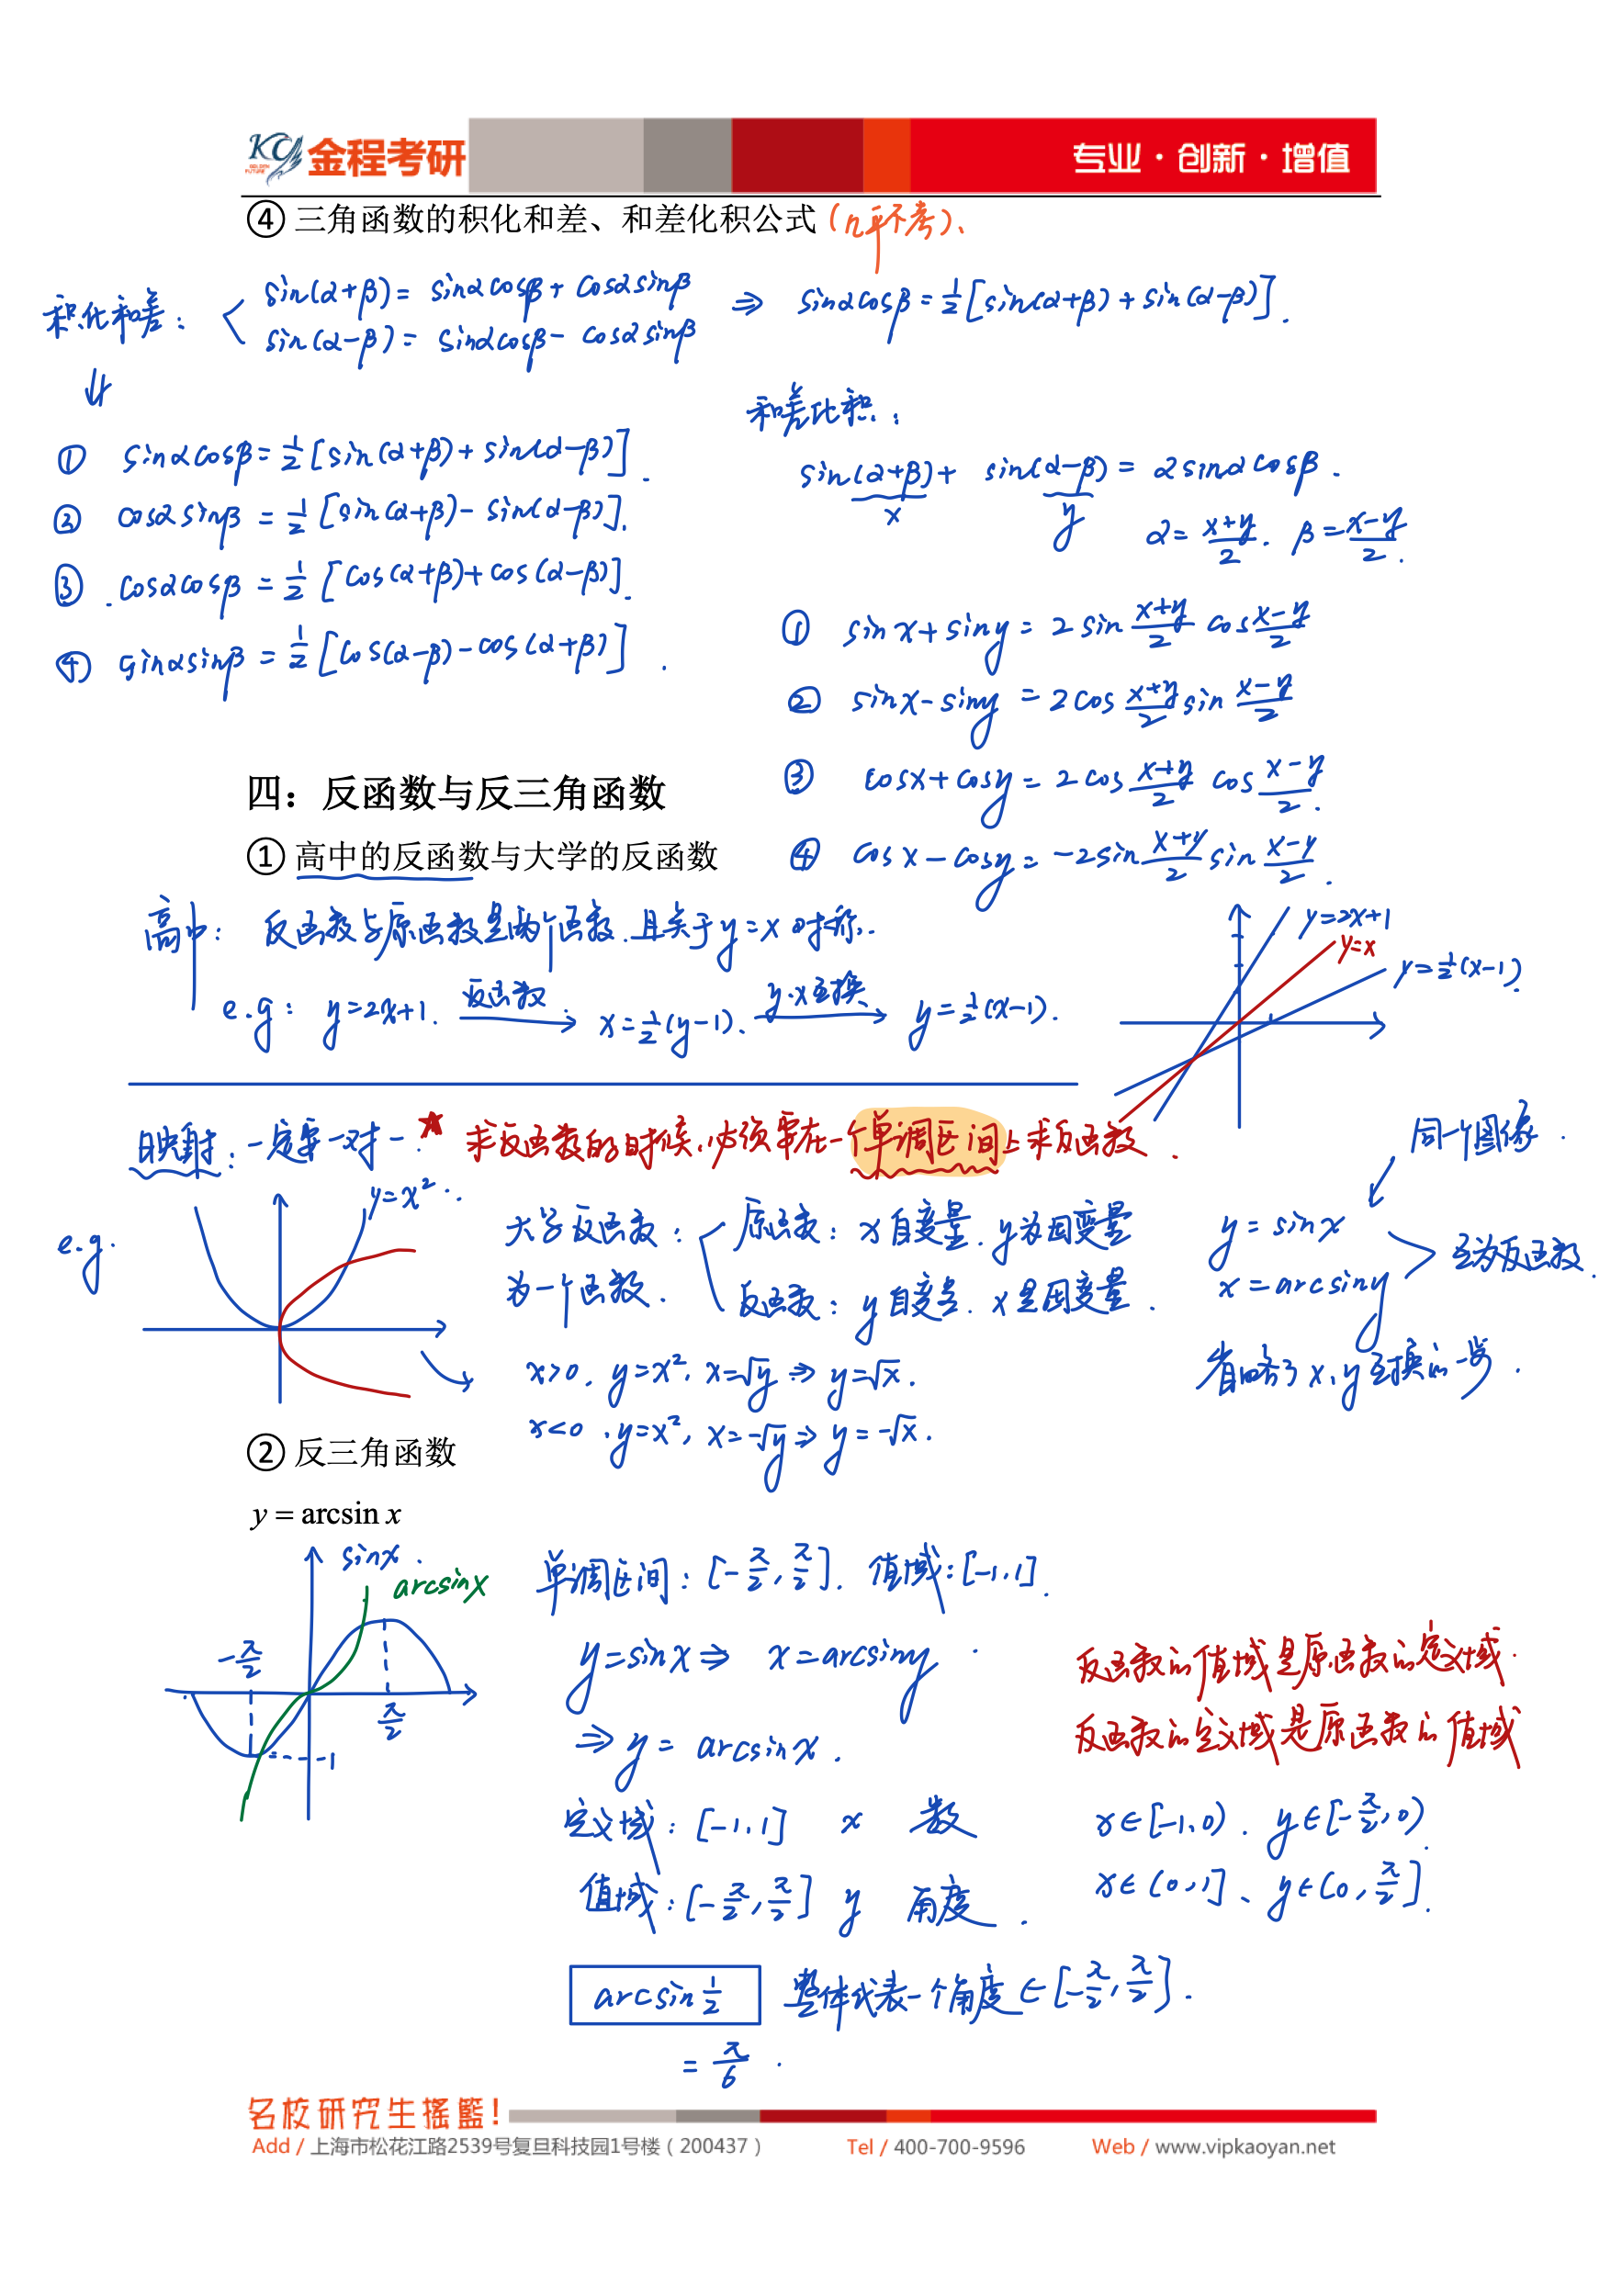 KC
GOLDEN FUTURE
金程考研
专业·创新·增值
④ 三角函数的积化和差、和差化积公式(几乎不考).
积化和差: sin(α+β)= sinαcosβ+ cosαsinβ
sin(α-β)= sinαcosβ- cosαsinβ
⇒ sinαcosβ=1/2[sin(α+β)+sin(α-β)].
⇓
① sinαcosβ=1/2[sin(α+β)+sin(α-β)].
② cosαsinβ=1/2[sin(α+β)-sin(α-β)].
③ cosαcosβ=1/2[cos(α+β)+cos(α-β)].
④ sinαsinβ=1/2[cos(α-β)-cos(α+β)].
和差化积:
sin(α+β)+ sin(α-β)= 2sinαcosβ.
x y α=(x+y)/2. β=(x-y)/2.
① sinx+siny=2sin (x+y)/2 cos (x-y)/2
② sinx-siny=2cos (x+y)/2 sin (x-y)/2
③ cosx+cosy=2cos (x+y)/2 cos (x-y)/2.
④ cosx-cosy=-2sin (x+y)/2 sin (x-y)/2.
四：反函数与反三角函数
① 高中的反函数与大学的反函数
高中: 反函数与原函数是两个函数.且关于y=x对称.
e.g: y=2x+1. 反函数→ x=1/2(y-1). y.x互换→ y=1/2(x-1).
y=2x+1
y=x
y=1/2(x-1)
映射:一定要一对一. ★ 求反函数的时候,必须要在一个单调区间上求反函数.
e.g.
y=x².
大学反函数: 原函数: x自变量. y为因变量
为一个函数. 反函数: y自变量. x是因变量.
同一个图像.
y=sinx
x=arcsiny
互为反函数.
省略了x,y互换的一步.
x>0. y=x², x=√y ⇒ y=√x.
x<0. y=x², x=-√y ⇒ y=-√x.
② 反三角函数
y = arcsin x
sinx.
arcsinx
-π/2
π/2
-1
单调区间:[-π/2,π/2]. 值域:[-1,1].
y=sinx ⇒ x=arcsiny.
⇒ y= arcsinx.
反函数的值域是原函数的定义域.
反函数的定义域是原函数的值域
定义域:[-1,1] x 数
值域:[-π/2,π/2] y 角度.
x∈[-1,0). y∈[-π/2,0).
x∈(0,1]、y∈(0,π/2].
arcsin1/2 整体代表一个角度∈[-π/2,π/2].
=π/6.
名校研究生摇籃!
Add / 上海市松花江路2539号复旦科技园1号楼（200437） Tel / 400-700-9596 Web / www.vipkaoyan.net